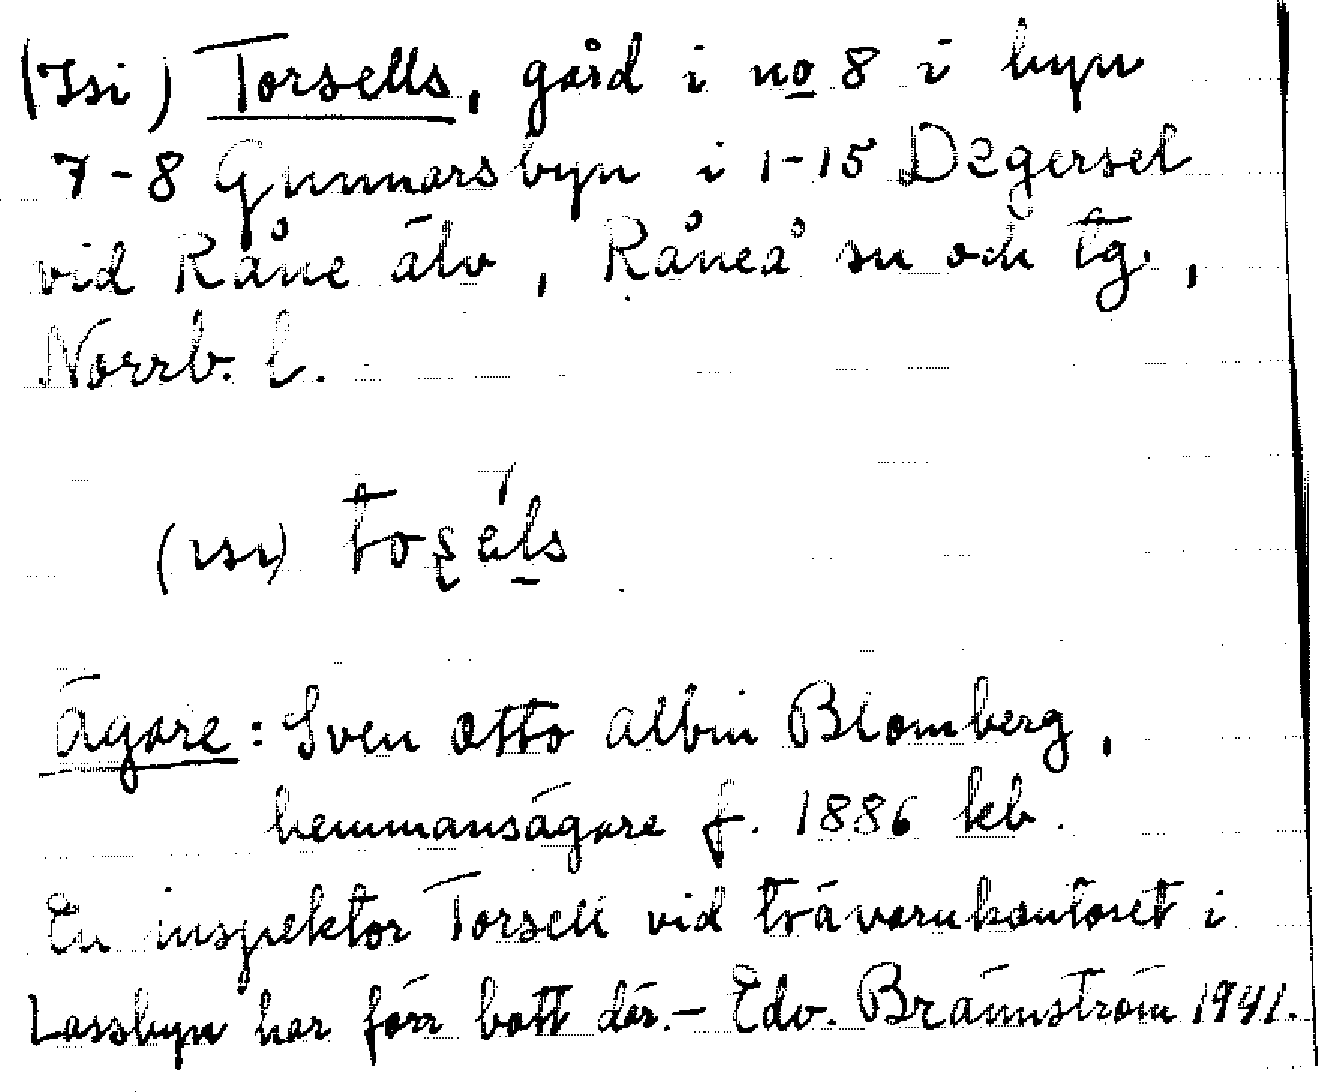 (Isi) Torsells, gård i no 8 i byn
7-8 Gunnarsbyn i 1-15 Degersel
vid Råne älv, Råneå sn och tg.,
Norrb. l.
(ısı) toşéls
Ägare: Sven Otto Albin Blomberg,
hemmansägare f. 1886 kb.
En inspektor Torsell vid trävarukontoret i
Lassbyn har förr bott där. - Edv. Brännström 1941.